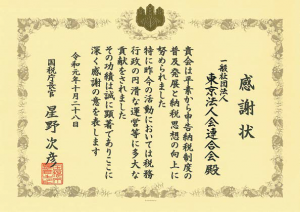 感謝状
一般社団法人
東京法人会連合会殿
貴会は平素から申告納税制度の
普及発展と納税思想の向上に
努められました
特に昨今の活動においては税務
行政の円滑な運営等に多大な
貢献をされました
その功績は誠に顕著でありここに
深く感謝の意を表します
令和元年十月二十八日
国税庁長官
星野次彦